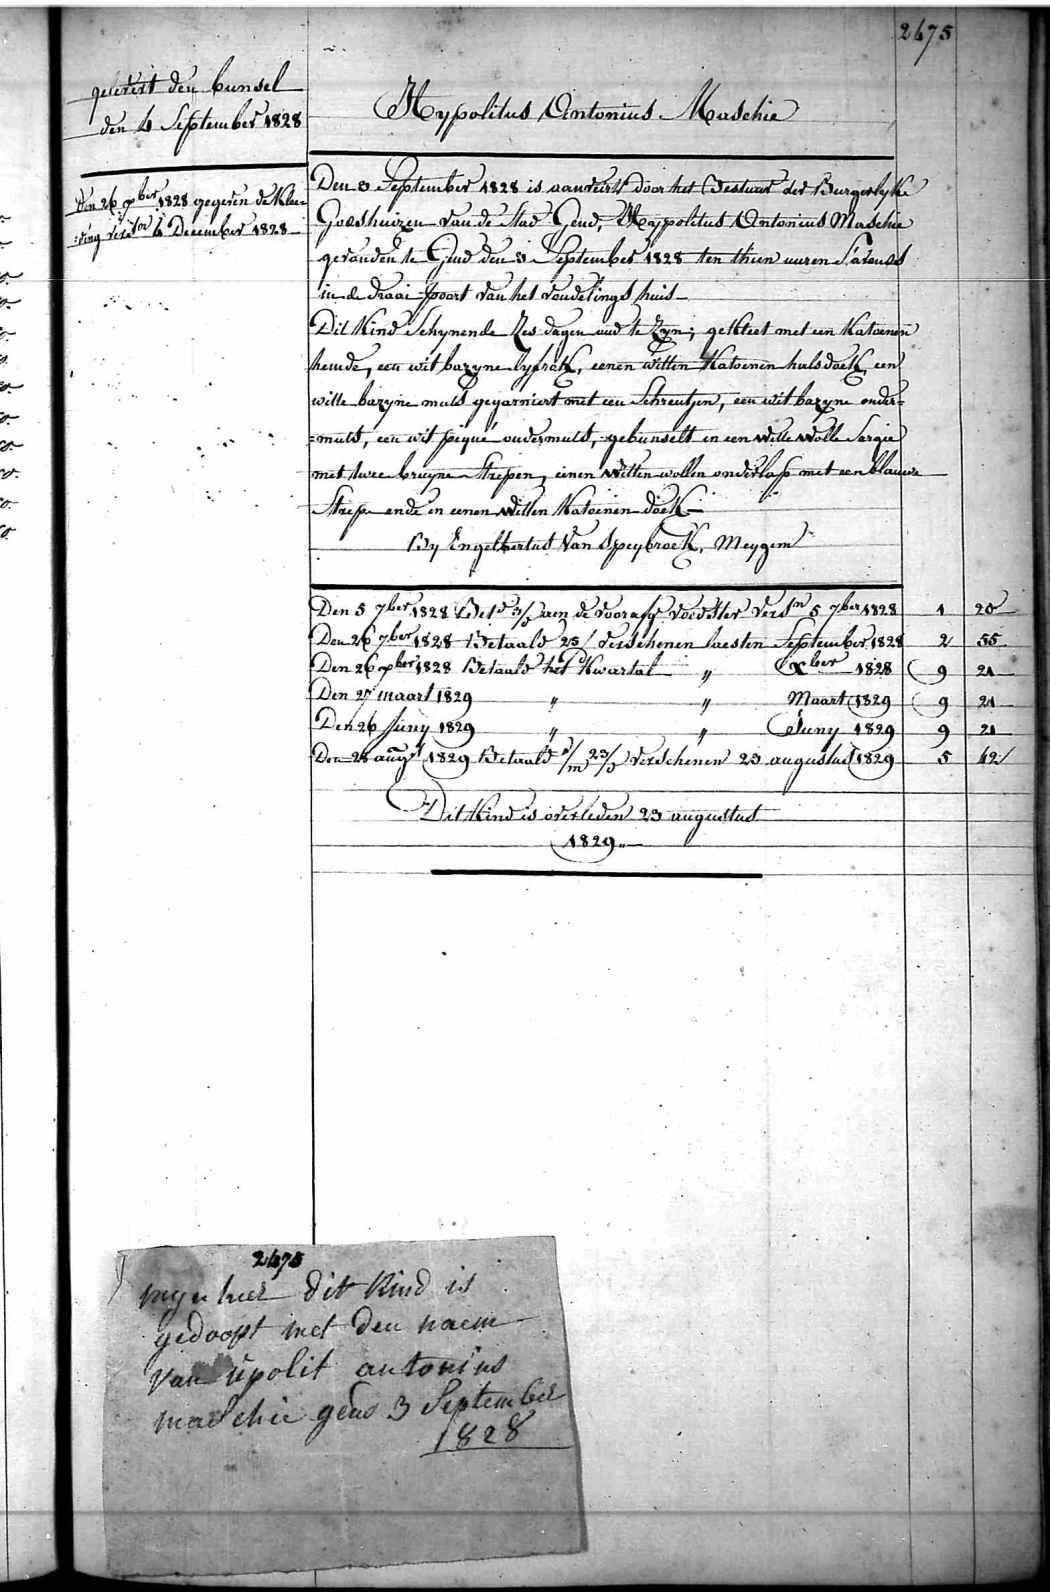 2675
geleverd den bunsel
den 4 September 1828
den 26 xber 1828 gegeven de Klee-
:ding versn 4 December 1828
Hypolitus Antonius Maschie
Den 3 September 1828 is aanveerd door het Bestuur der Burgerlyke
Godshuizen van de Stad Gend, Hyppolitus Antonius Maschie
gevonden te Gend den 3 September 1828 ten thien uuren S'avonds
in de draai-poort van het vondelings huis
Dit Kind Schynende Zes dagen oud te Zyn; gekleet met een Katoenen
hemde, een wit bazyne lyfrok, eenen witten Katoenen halsdoek, een
witte bazyne muts gegarniert met een Schreutjen, een wit bazyne onder=
=muts, een wit piqué ondermuts, gebunselt in een Witte Wolle Sargie
met twee bruyne Strepen, einen Witten wollen onderlap met een blauwe
Strep ende in eenen Witten Katoenen doek
By Engelbertus Van Speybroeck, Meygem
Den 5 7ber 1828 Betd 3/ aen de voorafg voedster versn 5 7ber 1828 1 20
Den 26 7ber 1828 Betaald 25/ verschenen laesten September 1828 2 55
Den 26 xber 1828 Betaald het Kwartal " Xber 1828 9 21
Den 27 maart 1829 " " Maart 1829 9 21
Den 26 Juny 1829 " " Juny 1829 9 21
Den 28 augt 1829 Betaald 1/m 23/ verschenen 23 augustus 1829 5 42
Dit Kind is overleden 23 augustus
1829
2675
myn heer dit Kind is
gedoopt met den naem
van ipolit antonius
maschie gend 3 September
1828